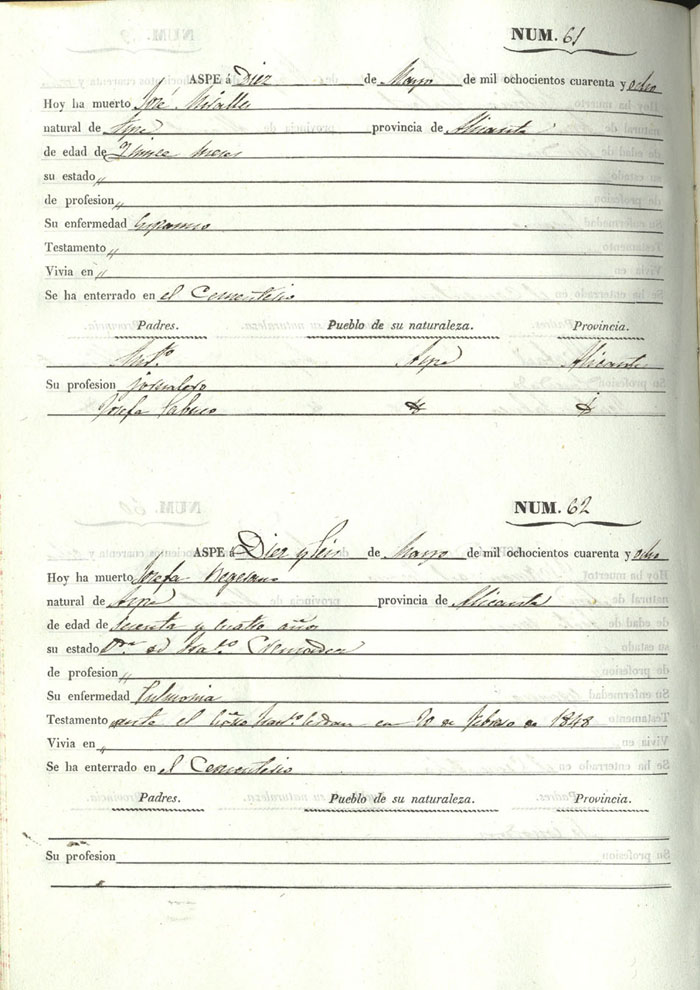 NUM. 61
ASPE á Diez de Mayo de mil ochocientos cuarenta y ocho
Hoy ha muerto José Miralles
natural de Aspe provincia de Alicante
de edad de Quince meses
su estado "
de profesion "
Su enfermedad
Testamento "
Vivia en "
Se ha enterrado en el Cementerio
Padres. Pueblo de su naturaleza. Provincia.
Anto. Aspe Alicante
Su profesion jornalero
Josefa
NUM. 62
ASPE á Diez y seis de Mayo de mil ochocientos cuarenta y ocho
Hoy ha muerto Josefa
natural de Aspe provincia de Alicante
de edad de sesenta y cuatro años
su estado
de profesion "
Su enfermedad Pulmonia
Testamento ante el en 20 de febrero de 1848
Vivia en "
Se ha enterrado en el Cementerio
Padres. Pueblo de su naturaleza. Provincia.
Su profesion